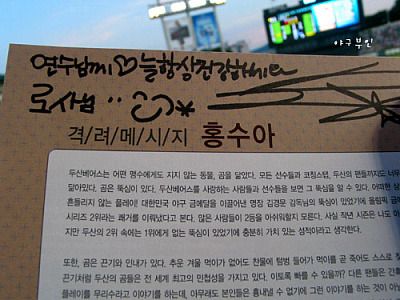 야구부인
늘 항상 건강하세요
격/려/메/시/지 홍수아
두산베어스는 어떤 맹수에게도 지지 않는 동물, 곰을 닮았다. 모든 선수들과 코칭스탭, 두산의 팬들까지도 너무
닮아있다. 곰은 뚝심이 있다. 두산베어스를 사랑하는 사람들과 선수들을 보면 그 뚝심을 알 수 있다. 어떠한 상
흔들리지 않는 플레이! 대한민국 야구 금메달을 이끌어낸 명장 김경문 감독님의 뚝심이 있었기에 올림픽 금메
시리즈 2위라는 쾌거를 이뤄냈다고 본다. 많은 사람들이 2등을 아쉬워할지 모른다. 사실 작년 시즌은 나도 아
지만 두산의 2위 속에는 1위에게 없는 뚝심이 있었기에 충분히 가치 있는 성적이라고 생각한다.
또한, 곰은 끈기와 인내가 있다. 추운 겨울 먹이가 없어도 찬물에 텀벙 들어가 먹이를 곧 죽어도 스스로 찾
끈기처럼 두산의 곰들은 전 세계 최고의 민첩성을 가지고 있다. 이토록 빠를 수 있을까? 다른 팬들은 간혹
플레이를 무리수라고 이야기를 하는데, 아무래도 본인들은 흉내낼 수 없기에 그런 이야기를 하는 것이 아닐